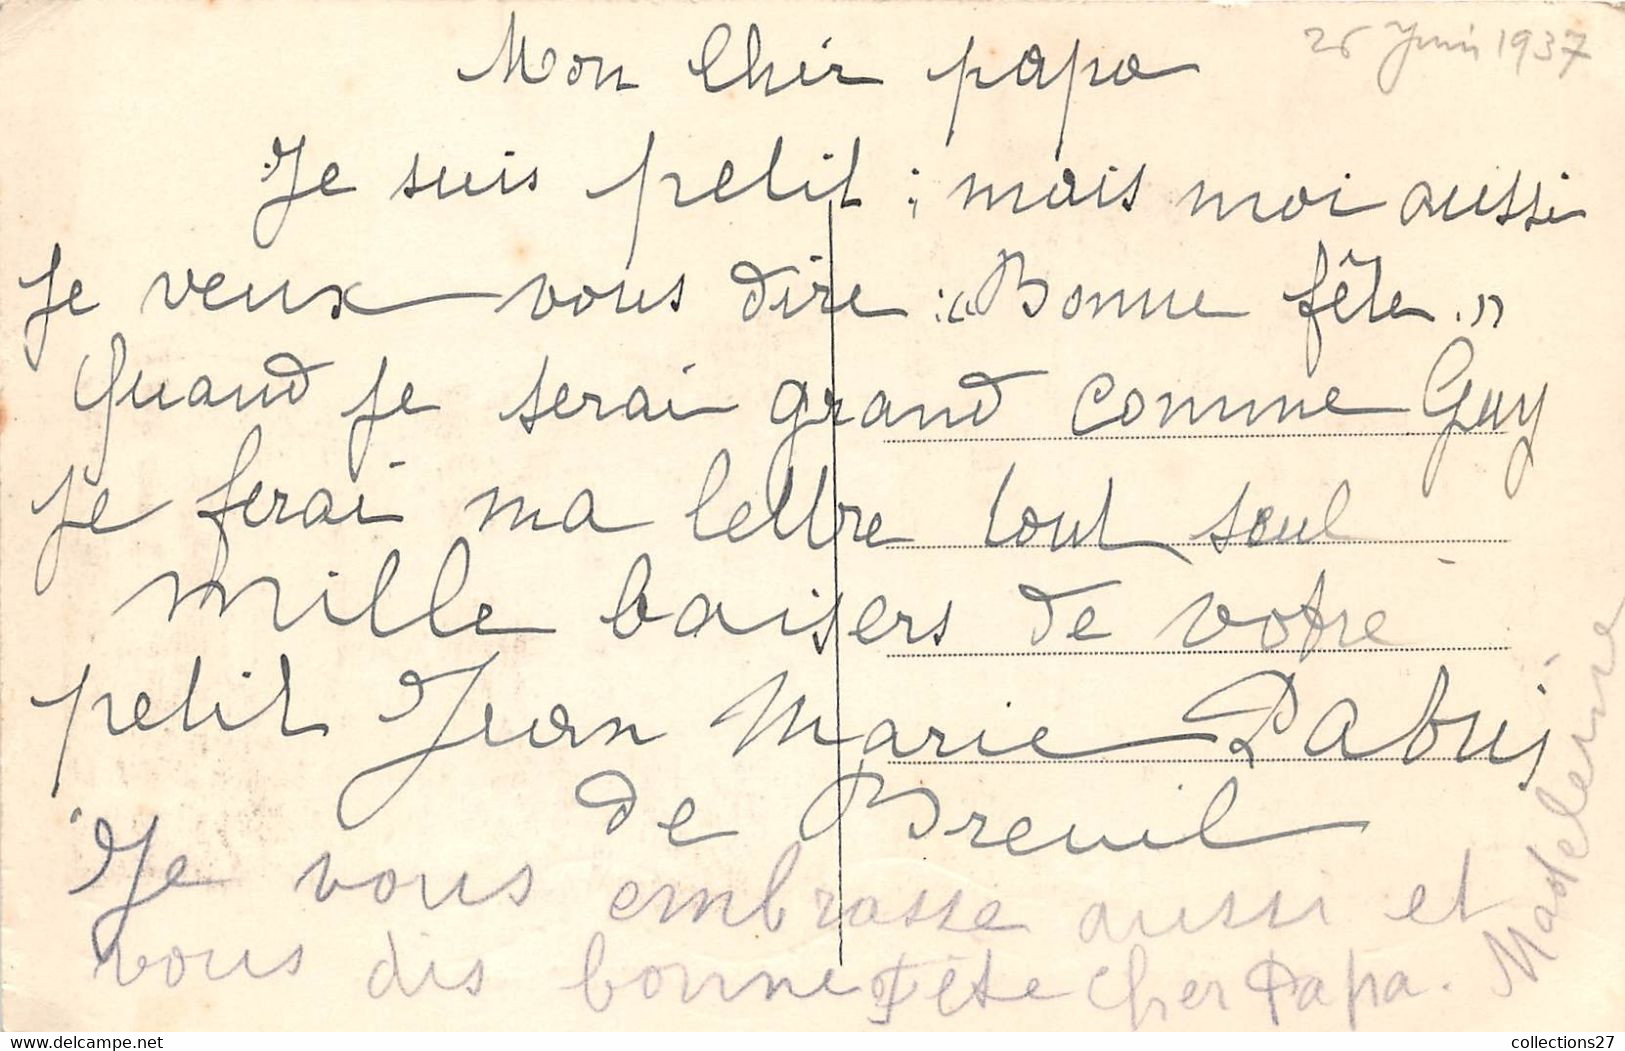 26 Juin 1937
Mon Cher papa
Je suis petit ; mais moi aussi
je veux vous dire : « Bonne fête. »
Quand je serai grand comme Guy
je ferai ma lettre tout seul
Mille baisers de votre
petit Jean Marie Dabuis
de Breuil
Je vous embrasse aussi et
vous dis bonne Fête Cher Papa.
Madeleine
collections27